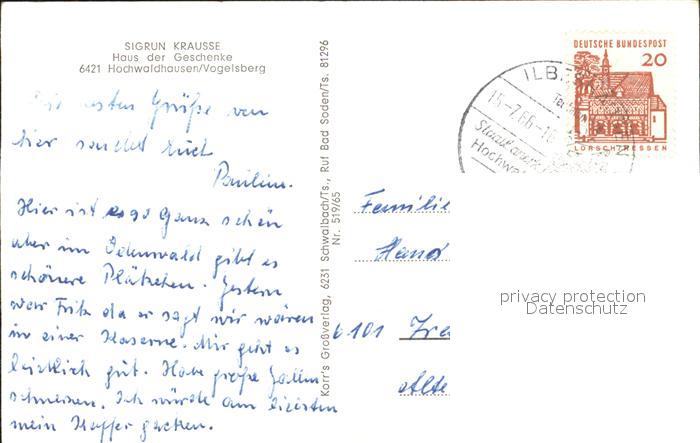 SIGRUN KRAUSSE
Haus der Geschenke
6421 Hochwaldhausen/Vogelsberg
Die ersten Grüße von
hier sendet Euch
Pauline.
Hier ist es ganz schön
aber im Odenwald gibt es
schönere Plätzchen. Gestern
war Fritz da er sagt wir wären
in einer Kaserne. Mir geht es
leidlich gut. Habe große Gallen
schmerzen. Ich würde am liebsten
mein Koffer packen.
Karr's Großverlag, 6231 Schwalbach/Ts., Ruf Bad Soden/Ts. 81296
Nr. 519/65
ILB
15-7.66-16
Staatl. anerk.
Hochwa
DEUTSCHE BUNDESPOST
20
LORSCH/HESSEN
Familie
Hans
6101
Alte
privacy protection
Datenschutz